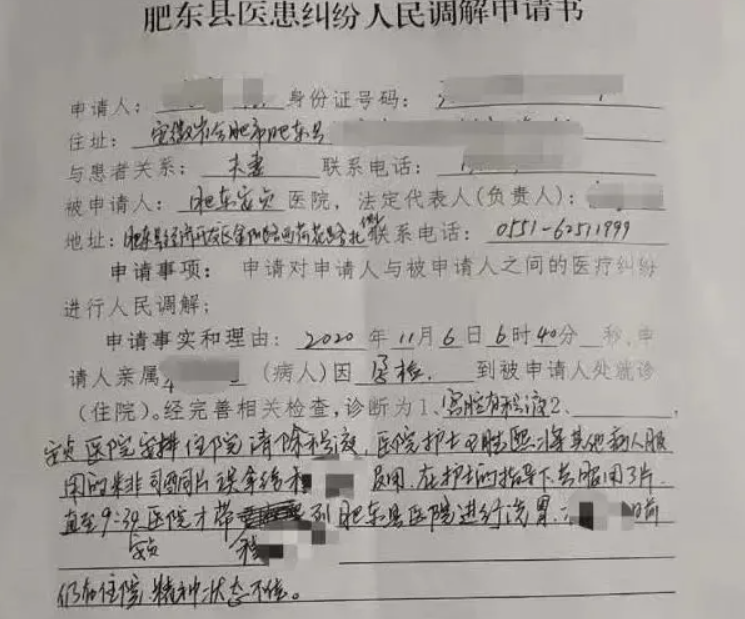 肥东县医患纠纷人民调解申请书
申请人： 身份证号码：
住址： 安徽省合肥市肥东县
与患者关系： 夫妻 联系电话：
被申请人： 肥东安贞 医院，法定代表人(负责人)：
地址： 肥东县经济开发区 联系电话： 0551-62511999
申请事项： 申请对申请人与被申请人之间的医疗纠纷
进行人民调解；
申请事实和理由： 2020 年 11 月 6 日 6 时 40 分 秒,申
请人亲属 (病人)因 孕检. 到被申请人处就诊
(住院)。经完善相关检查,诊断为 1、宫腔有积液 2、
安贞医院安排住院清除积液,医院护士 将其他病人服
用的米非司酮片误拿给 服用.在护士的指导下共服用3片.
直至9:39医院才带 到肥东县医院进行洗胃. 目前
安贞
仍在住院,精神状态不佳。